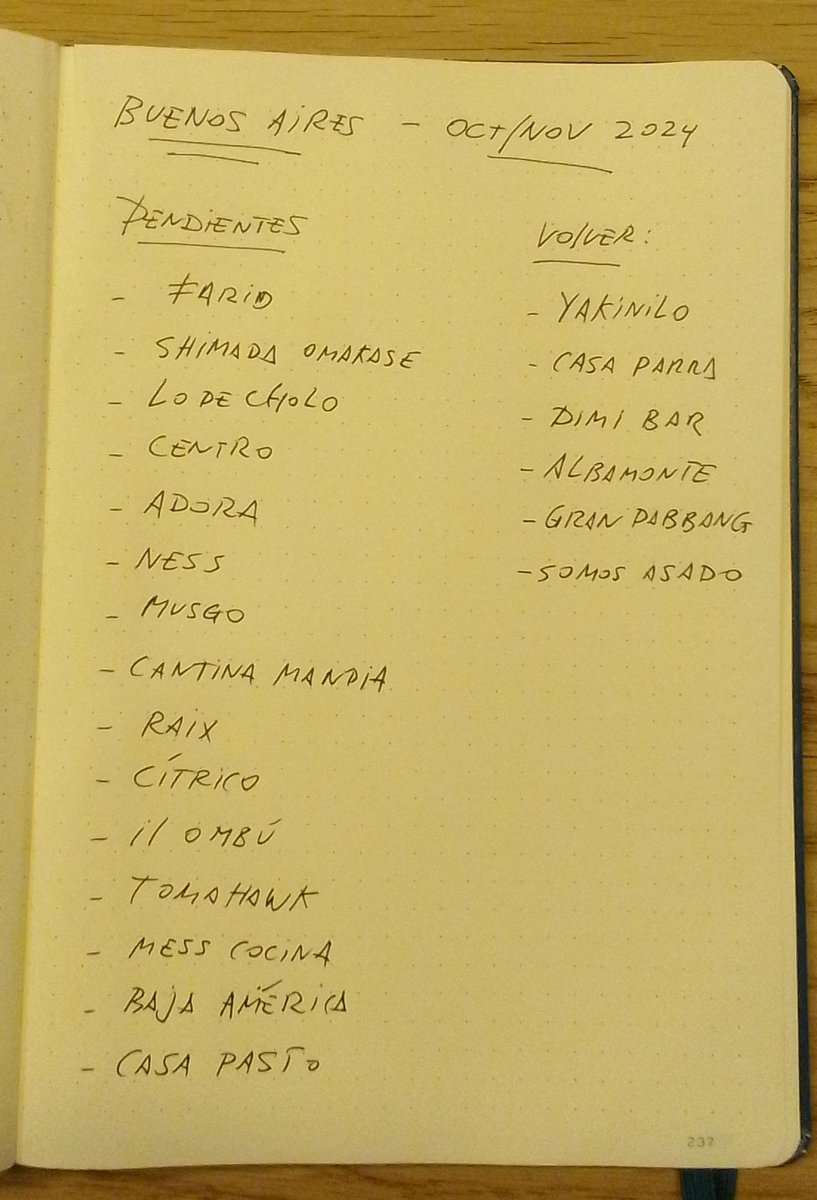 BUENOS AIRES - OCT/NOV 2024
PENDIENTES
- FARID
- SHIMADA OMAKASE
- LO DE CHOLO
- CENTRO
- ADORA
- NESS
- MUSGO
- CANTINA MANDIA
- RAIX
- CÍTRICO
- il OMBÚ
- TOMAHAWK
- MESS COCINA
- BAJA AMÉRICA
- CASA PASTO
VOLVER:
- YAKINILO
- CASA PARRA
- DIMI BAR
- ALBAMONTE
- GRAN DABBANG
- SOMOS ASADO
237